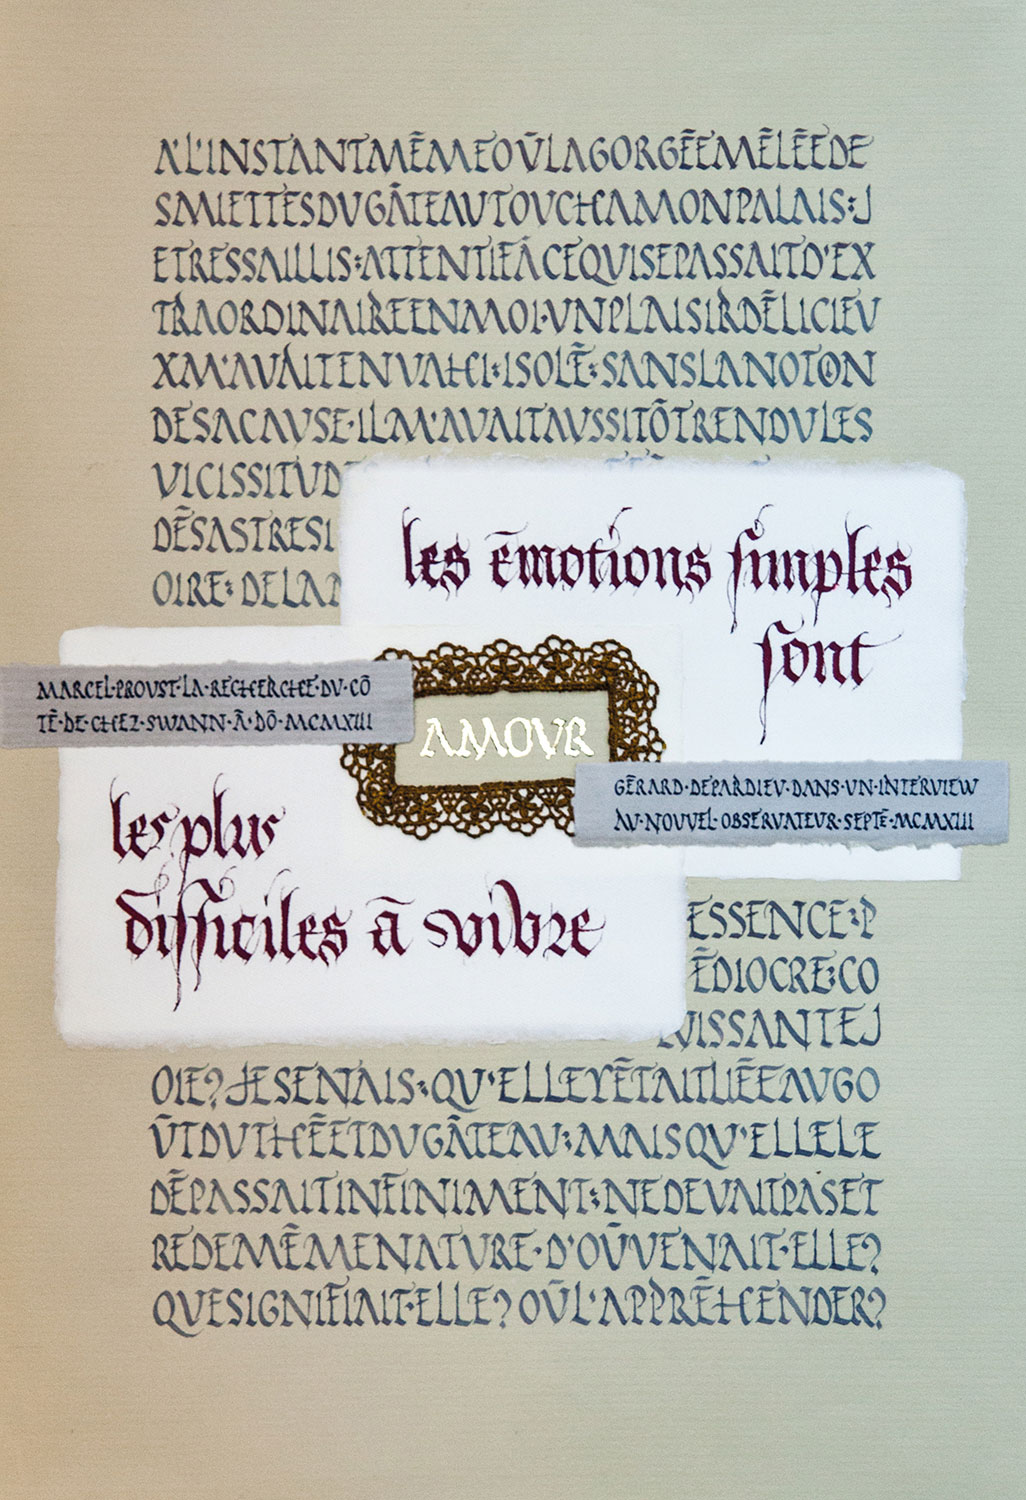 A'L'INSTANTMĒMEOŪLAGORGĒEMĒLĒEDE
SMIETTESDVGĀTEAVTOVCHAMONPALAIS:J
ETRESSAILLIS:ATTENTIFĀCEQVISEPASSAITD'EX
TRAORDINAIREENMOI·VNPLAISIRDĒLICIEV
XM'AVAITENVAHI:ISOLĒ:SANSLANOTION
DESACAVSE·ILM'AVAITAVSSITŌTRENDVLES
VICISSITVD
DĒSASTRESI
OIRE:DELA
les ēmotions simples
sont
MARCEL·PROVST·LA·RECHERCHE·DV·CŌ
TĒ·DE·CHEZ·SWANN·Ā·DŌ·MCMXIII
AMOVR
GĒRARD·DEPARDIEV·DANS·VN·INTERVIEW
AV·NOVVEL·OBSERVATEVR·SEPTĒ·MCMXIII
les plus
difficiles ā vivre
ESSENCE:P
ĒDIOCRE:CO
VISSANTEJ
OIE?JESENTAIS:QV'ELLEYĒTAITLIĒEAVGO
ŪTDVTHĒETDVGĀTEAV:MAISQV'ELLELE
DĒPASSAITINFINIMENT:NEDEVAITPASET
REDEMĒMENATVRE·D'OŪVENAIT·ELLE?
QVESIGNIFIAIT·ELLE?OŪL'APPRĒHENDER?